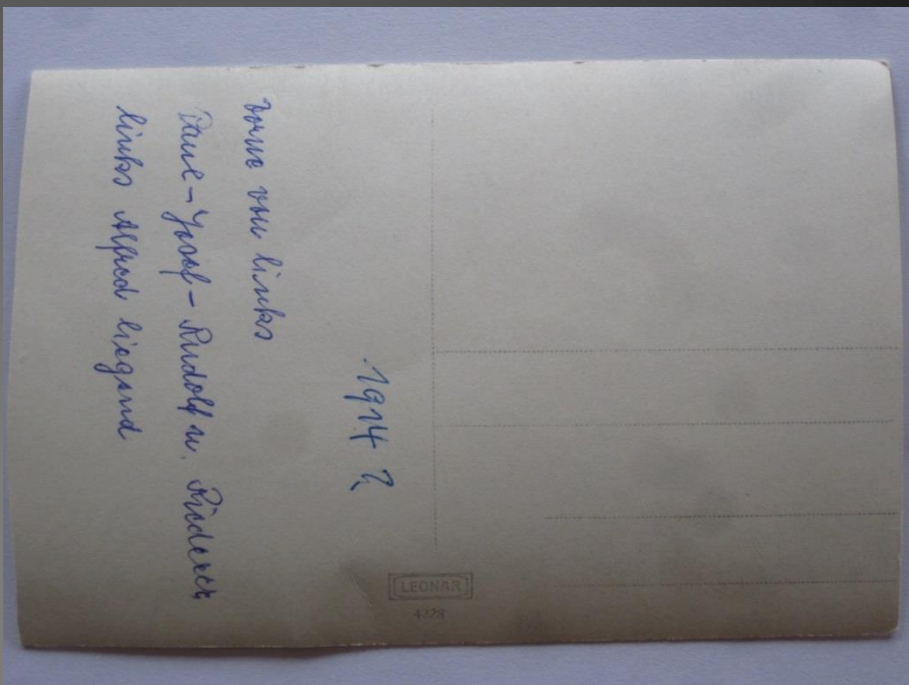 Vorne von links
Paul-Josef-Rudolf u. Riederer
links Alfred liegend
1914?
LEONAR
4228